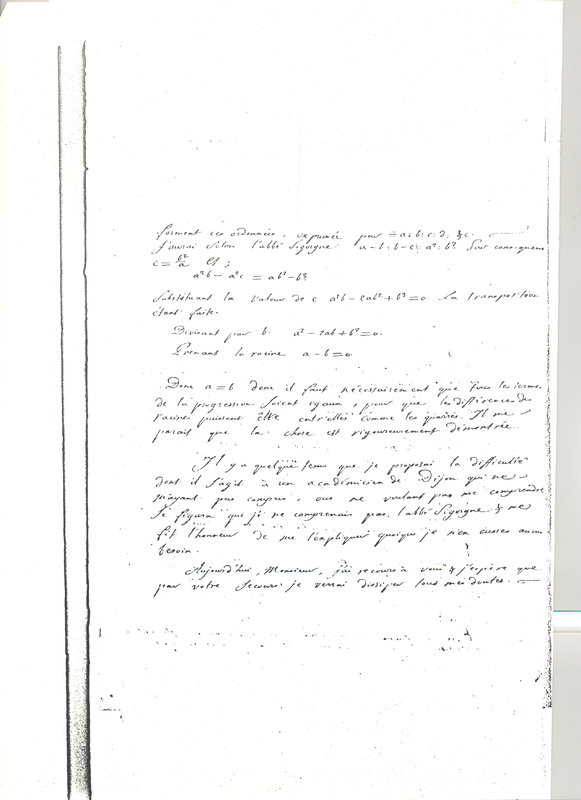 forment ces ordonnées, exprimée par ÷ a: b: c: d: &c.
J'aurai selon l'abbé Sigorgne a-b: b-c: a²: b². Par consequens
c = b²/a et;
a²b - a²c = ab² - b³.
Substituant la valeur de c a²b - 2ab² + b³ = 0. La transposition
étant faite.
Divisant par b. a² - 2ab + b² = 0.
Prenant la racine a - b = 0
Donc a = b donc il faut nécessairement que tous les termes
de la progression soient egaux, pour que les différences des
racines puissent être entr'elles comme les quarrés. Il me
parait que la chose est rigoureusement démontrée.
Il y a quelque tems que je proposai la difficulté
dont il s'agit à un académicien de Dijon qui ne
m'ayant pas compris, ou ne voulant pas me comprendre
se figura que je ne comprenais pas l'abbé Sigorgne & me
fit l'honneur de me l'expliquer quoique je n'en eusses aucun
besoin.
Aujourd'hui, Monsieur, j'ai recours à vous & j'espère que
par votre secours je verrai dissiper tous mes doutes.